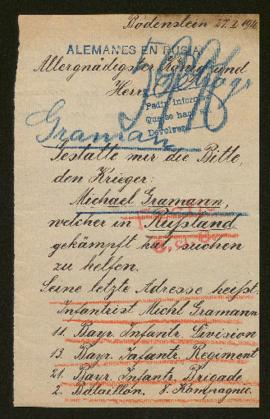 Bodenstein 27.X. 191
ALEMANES EN RUSIA
Allergnädigster König und
Herr
Pedir inform
Que se han
Devolver
Gramann
Gestatte mir die Bitte,
den Krieger:
Michael Gramann,
welcher in Rußland
gekämpft hat suchen
zu helfen.
Seine letzte Adresse heißt:
Infantrist Michl Gramann
11. Bayr. Infantr. Division
13. Bayr. Infantr. Regiment
21 Bayr. Infantr. Brigade
2. Bataillon. 8. Kompagnie.